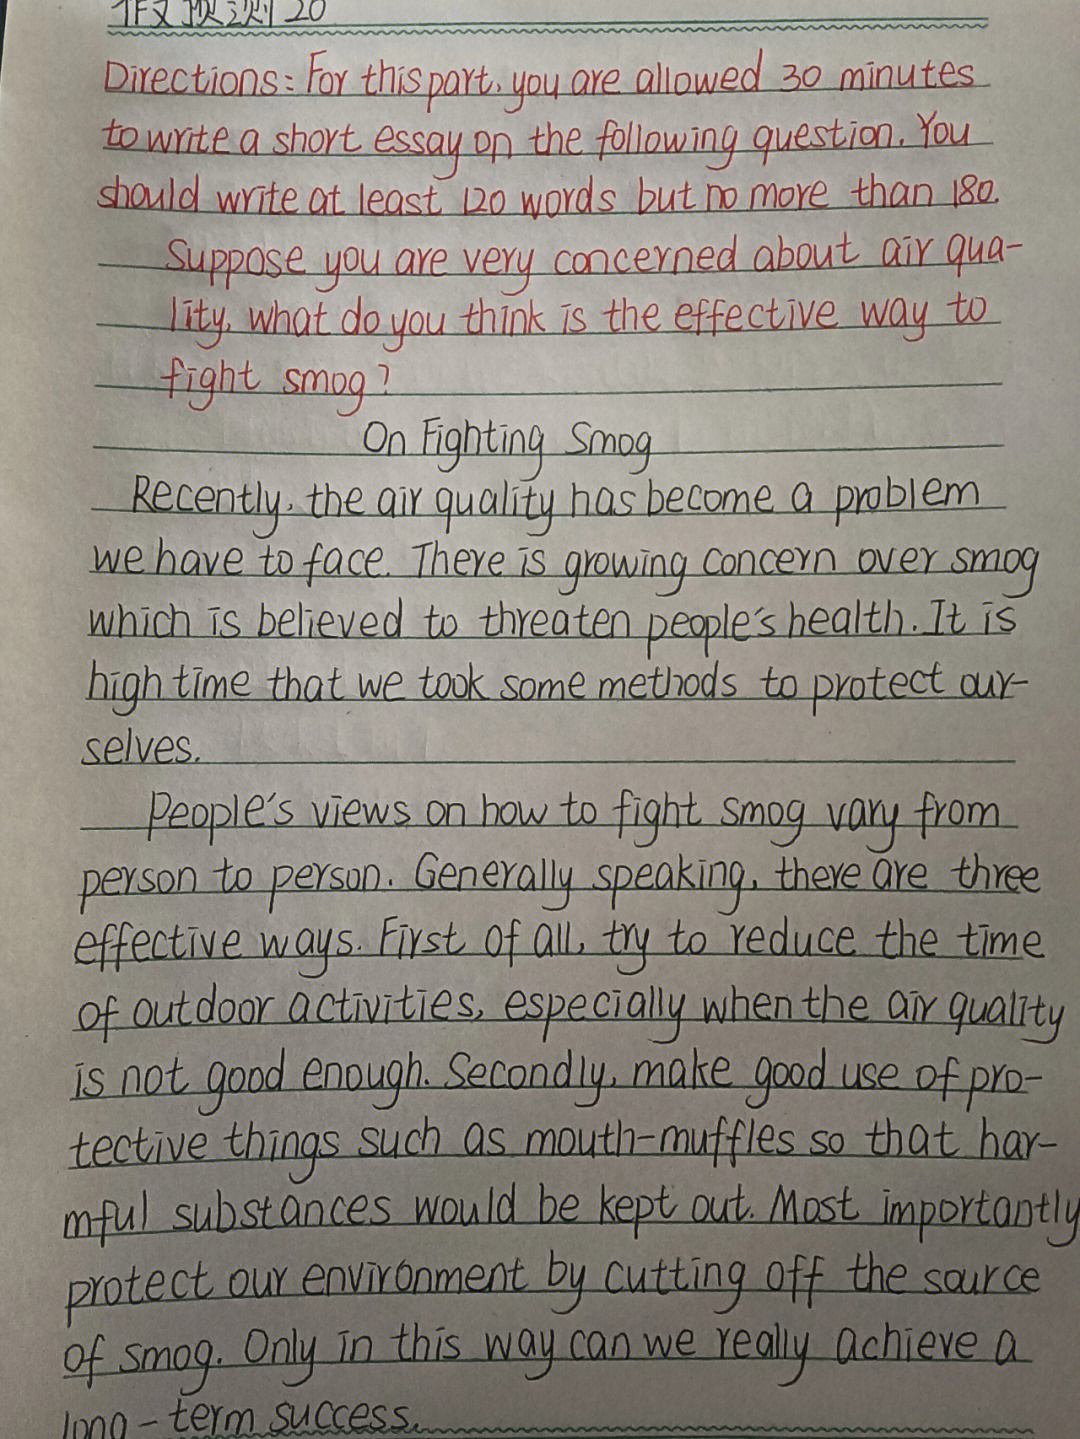 作文预测 20
Directions: For this part, you are allowed 30 minutes
to write a short essay on the following question. You
should write at least 120 words but no more than 180.
Suppose you are very concerned about air qua-
lity, what do you think is the effective way to
fight smog?
On Fighting Smog
Recently, the air quality has become a problem
we have to face. There is growing concern over smog
which is believed to threaten people's health. It is
high time that we took some methods to protect our-
selves.
People's views on how to fight smog vary from
person to person. Generally speaking, there are three
effective ways. First of all, try to reduce the time
of outdoor activities, especially when the air quality
is not good enough. Secondly, make good use of pro-
tective things such as mouth-muffles so that har-
mful substances would be kept out. Most importantly
protect our environment by cutting off the source
of smog. Only in this way can we really achieve a
long-term success.